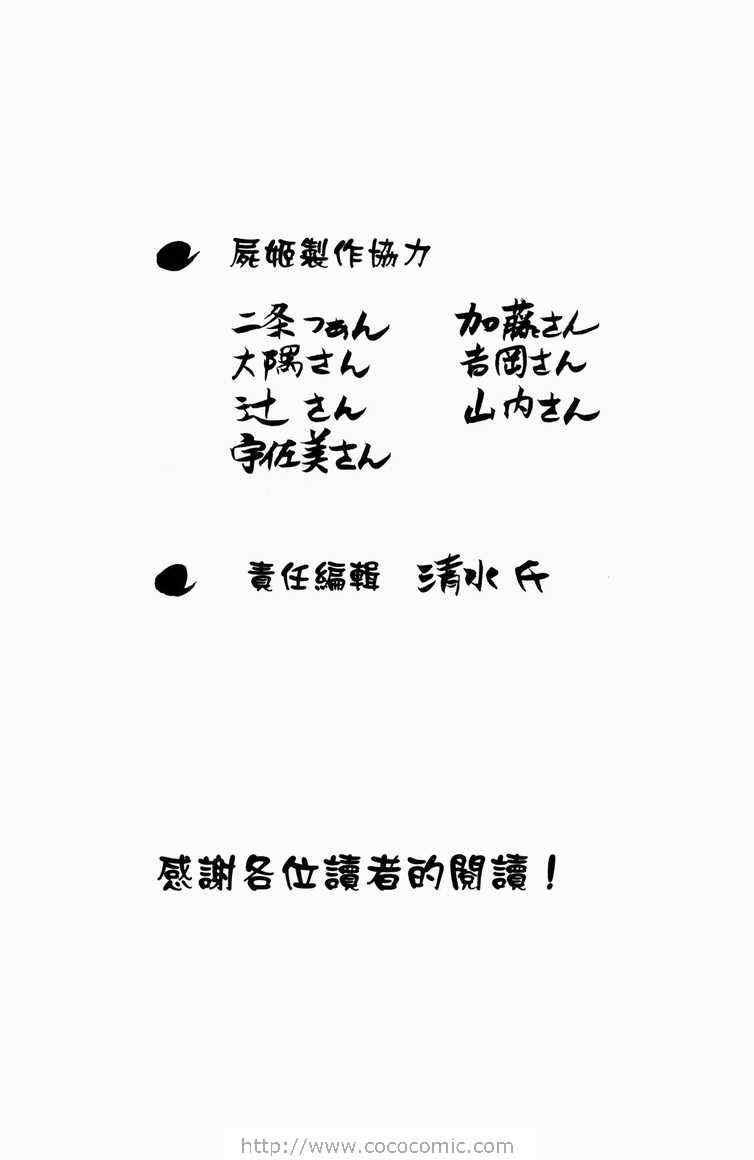 屍姬製作協力
二条つぁん 加藤さん
大隅さん 吉岡さん
辻さん 山内さん
宇佐美さん
責任編輯 清水氏
感謝各位讀者的閱讀！
http://www.cococomic.com